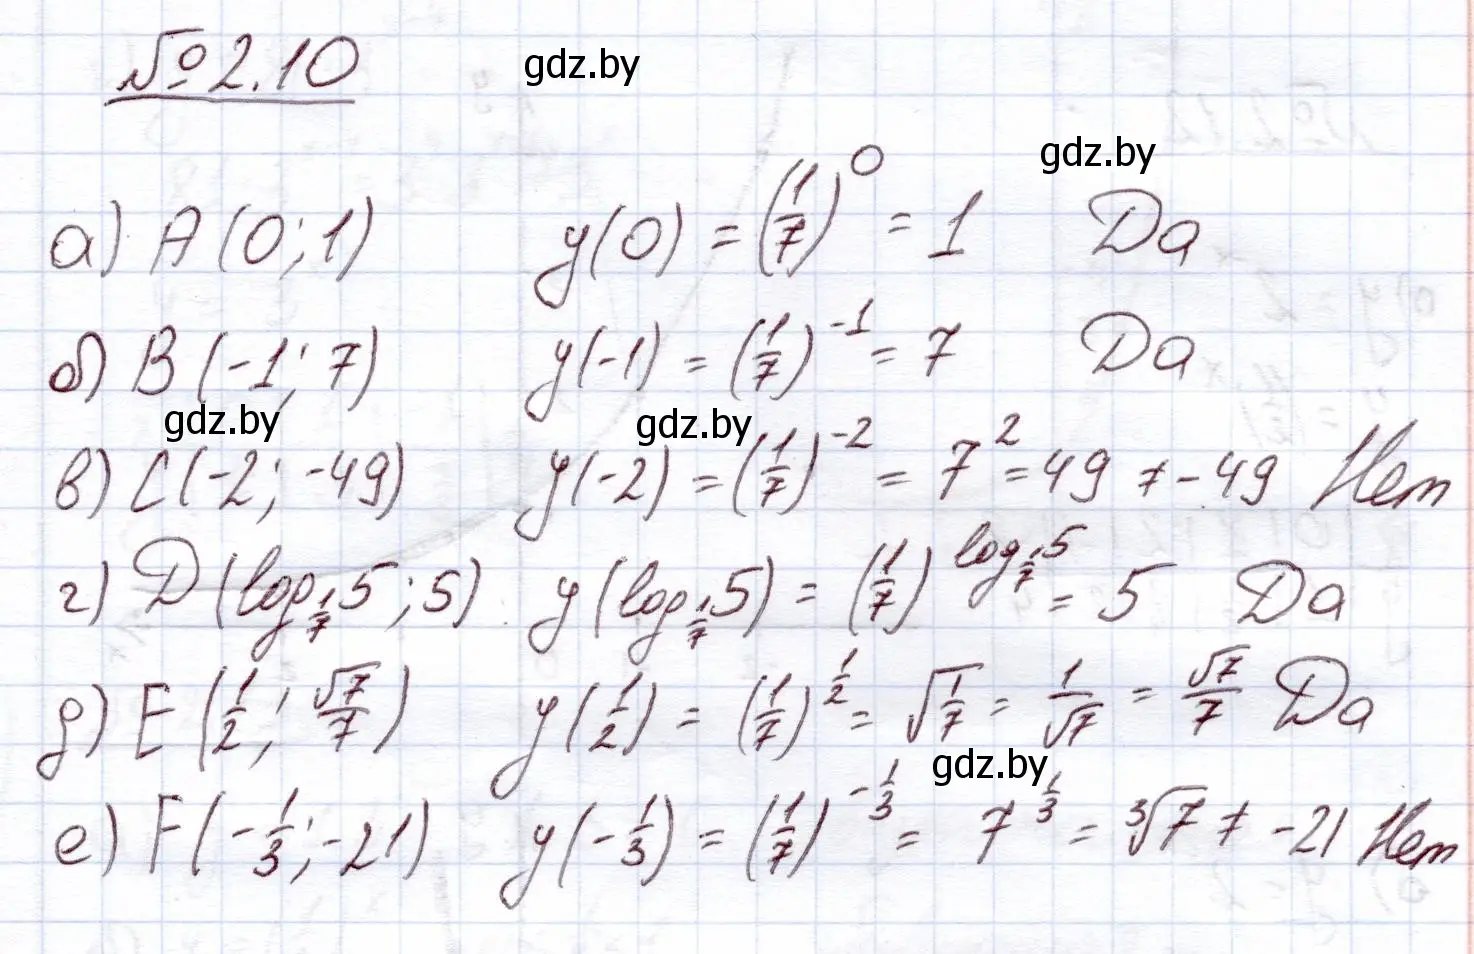 № 2.10 gdz.by
gdz.by
а) A (0; 1) y(0) = (1/7)^0 = 1 Да
б) B (-1; 7) y(-1) = (1/7)^-1 = 7 Да
gdz.by gdz.by
в) C (-2; -49) y(-2) = (1/7)^-2 = 7^2 = 49 ≠ -49 Нет
г) D (log_1/7 5; 5) y(log_1/7 5) = (1/7)^log_1/7 5 = 5 Да
д) E (1/2; √7/7) y(1/2) = (1/7)^1/2 = √1/7 = 1/√7 = √7/7 Да
gdz.by
е) F (-1/3; -21) y(-1/3) = (1/7)^-1/3 = 7^1/3 = ³√7 ≠ -21 Нет